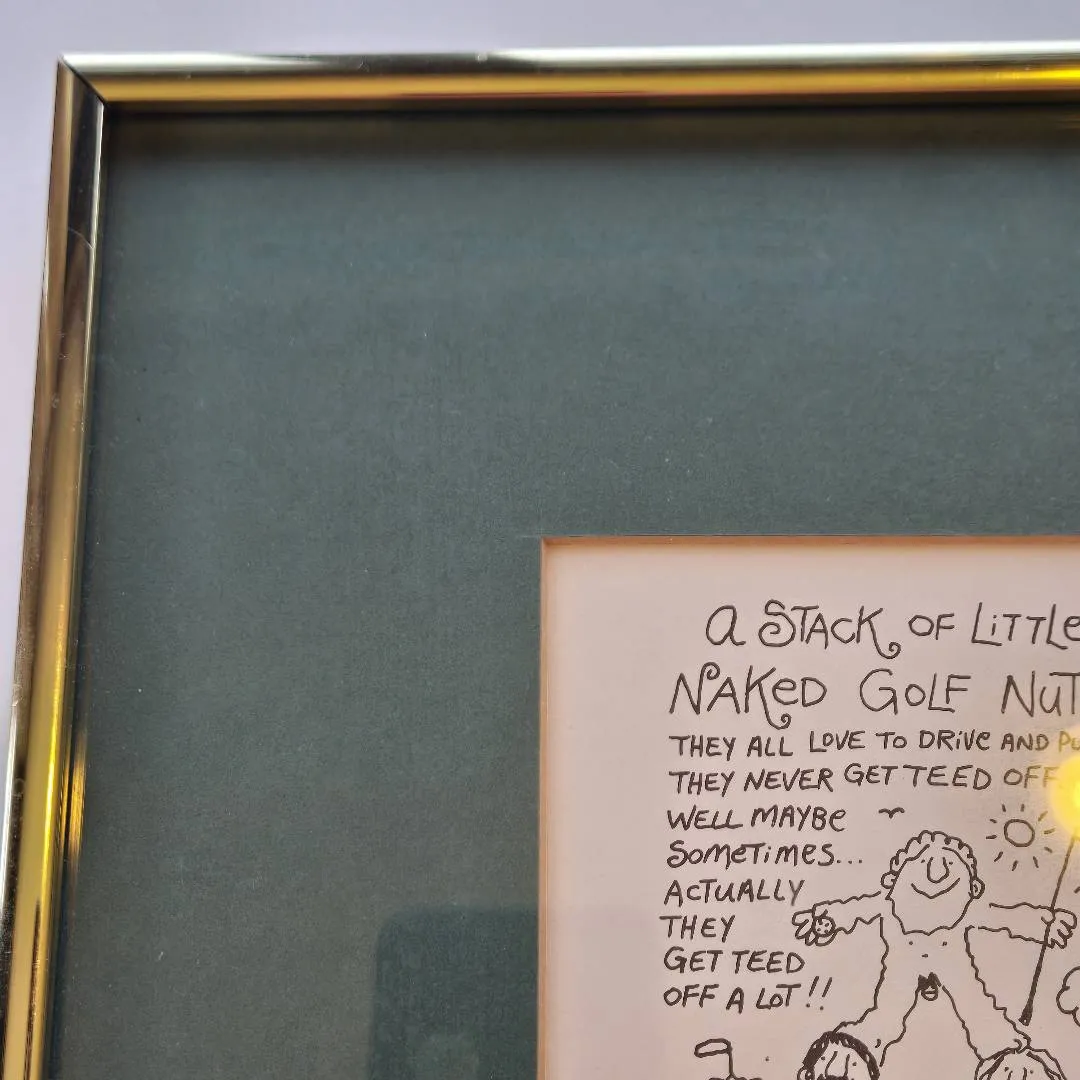 A STACK OF LiTTLe
NAKeD GOLF NUT
THEY ALL LOVE TO DRiVe AND PU
THEY NEVER GET TEED OFF
WELL MAYBe
SOMeTiMeS...
ACTUALLY
THEY
GET TEED
OFF A LOT!!